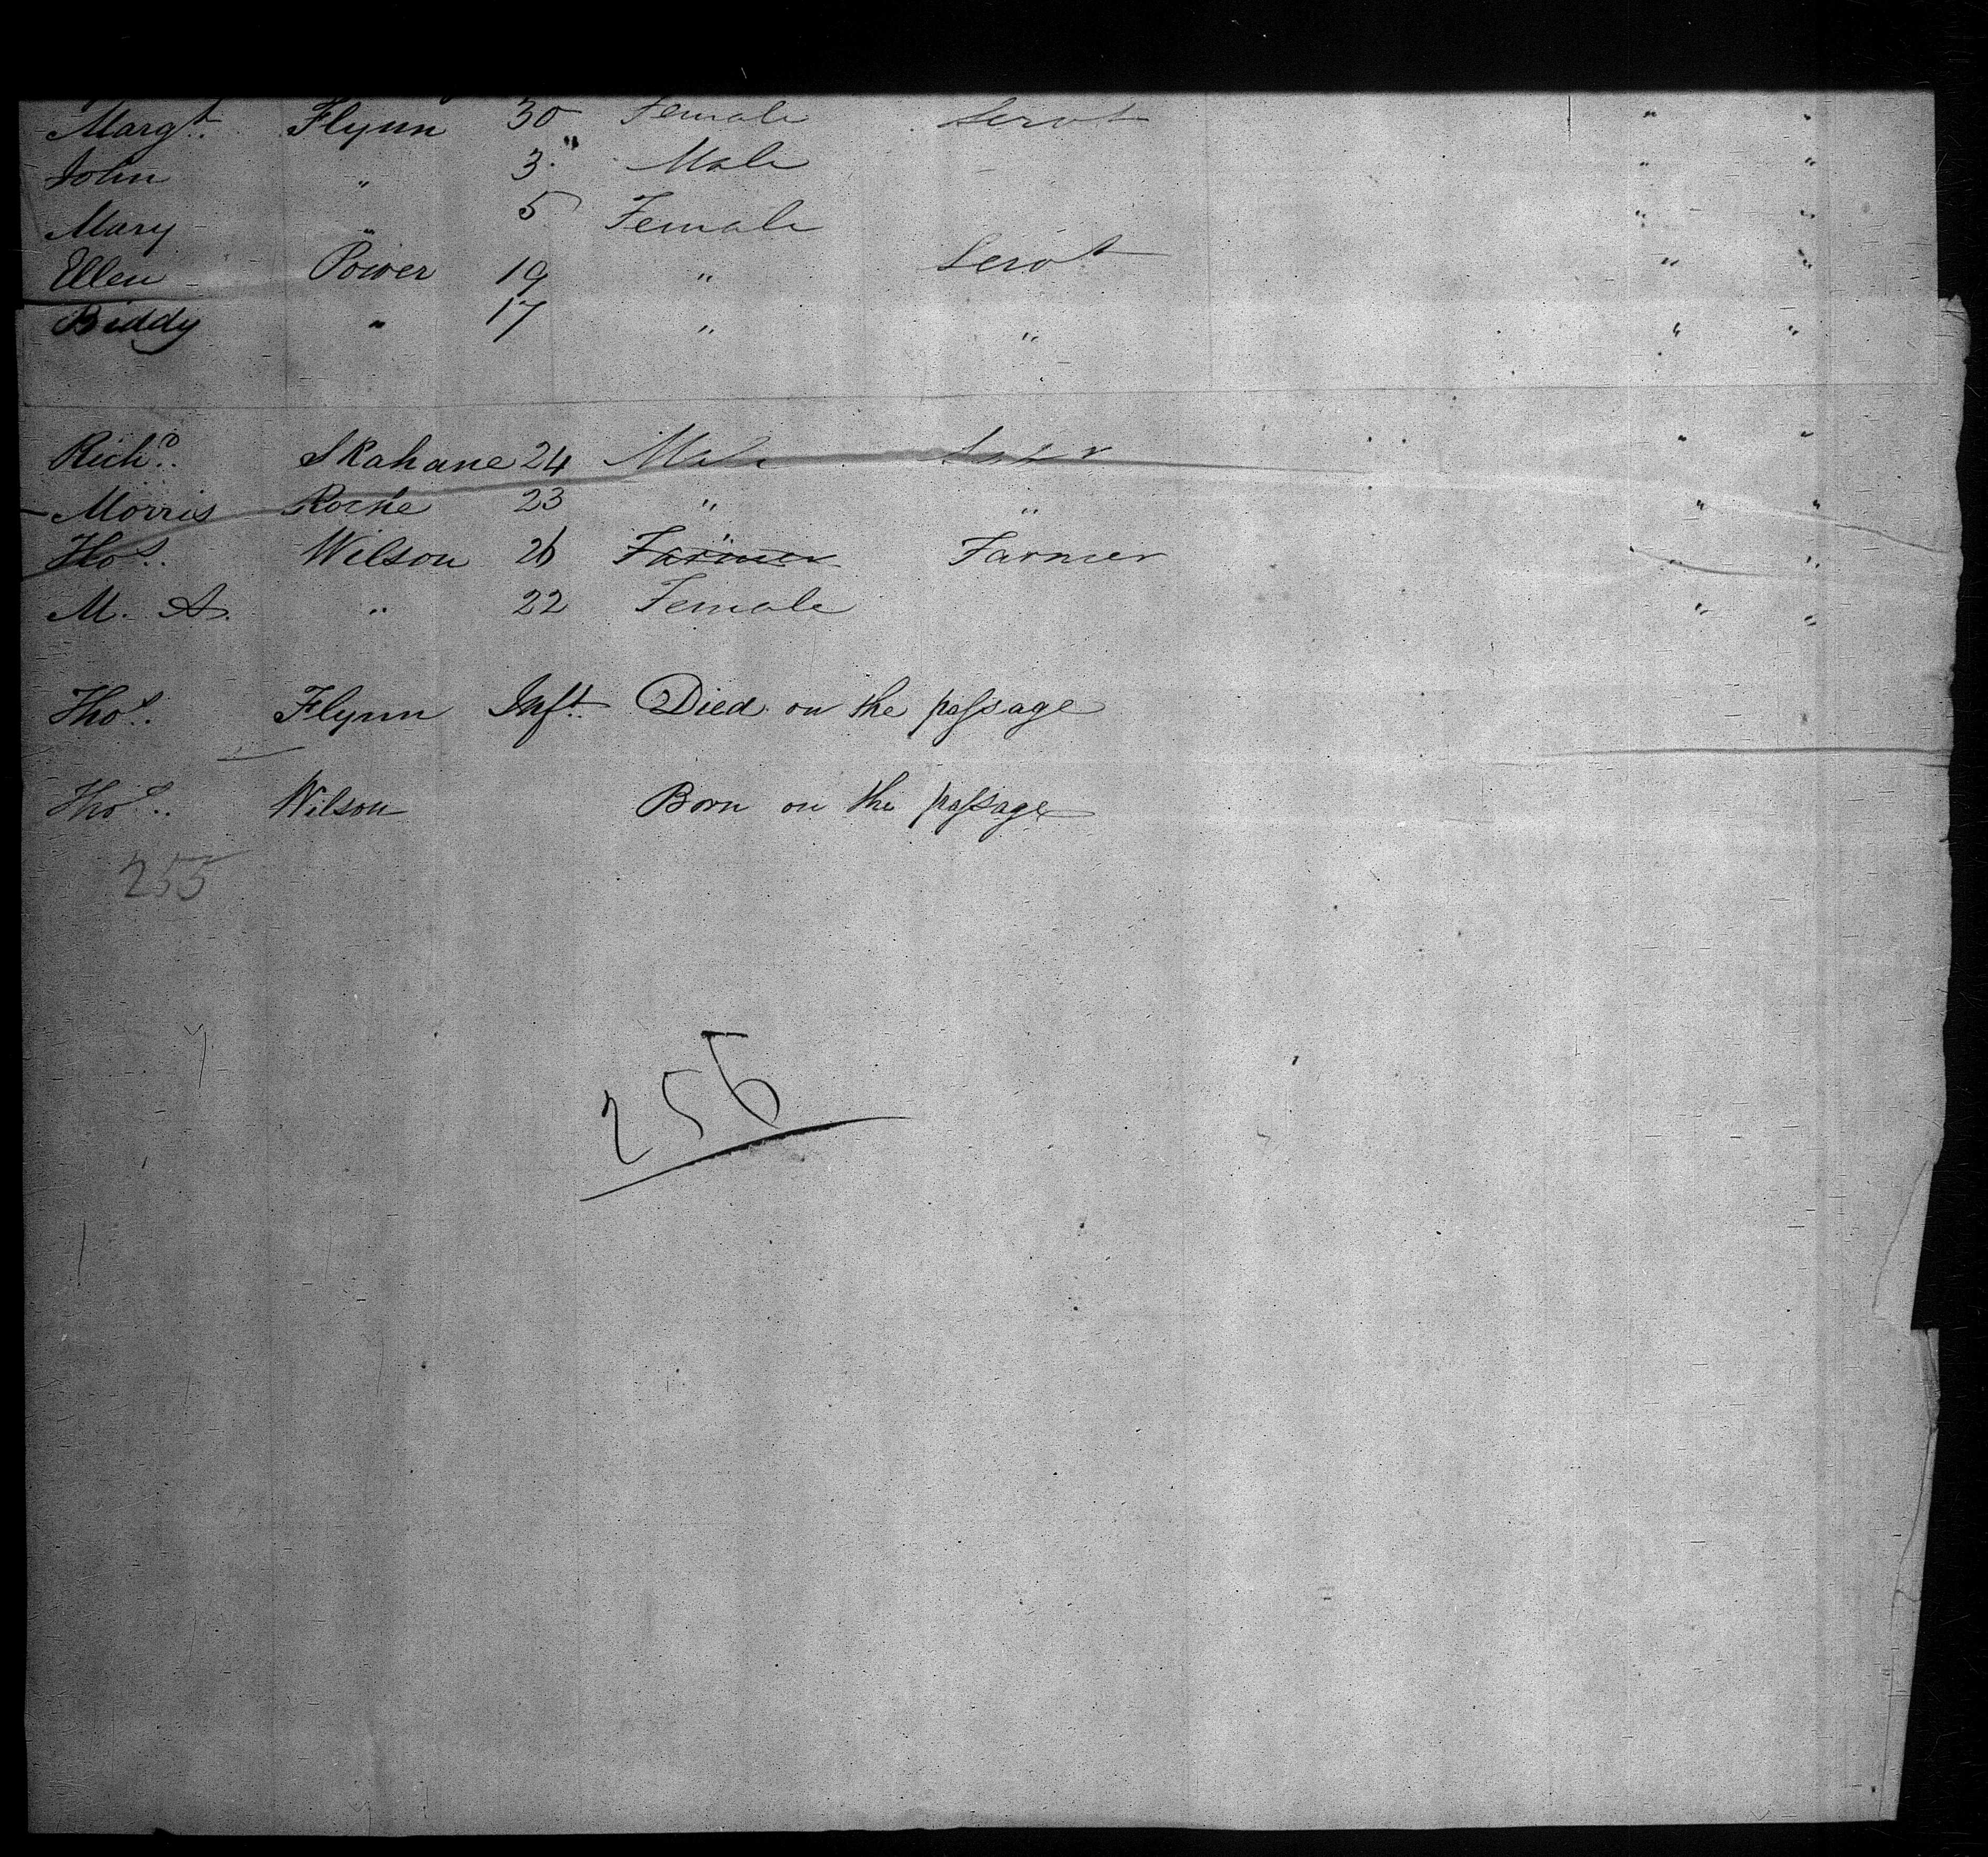 Margt. Flynn 30 Female Servt " "
John " 3 Male " "
Mary " 5 Female " "
Ellen Power 19 " Servt " "
Biddy " 17 " " " "
Richd. Skahane 24 Male " "
Morris Roche 23 " " " "
Thos. Wilson 26 Farmer Farmer " "
M. A. " 22 Female " "
Thos. Flynn Inft. Died on the passage
Thos. Wilson Born on the passage
255
256